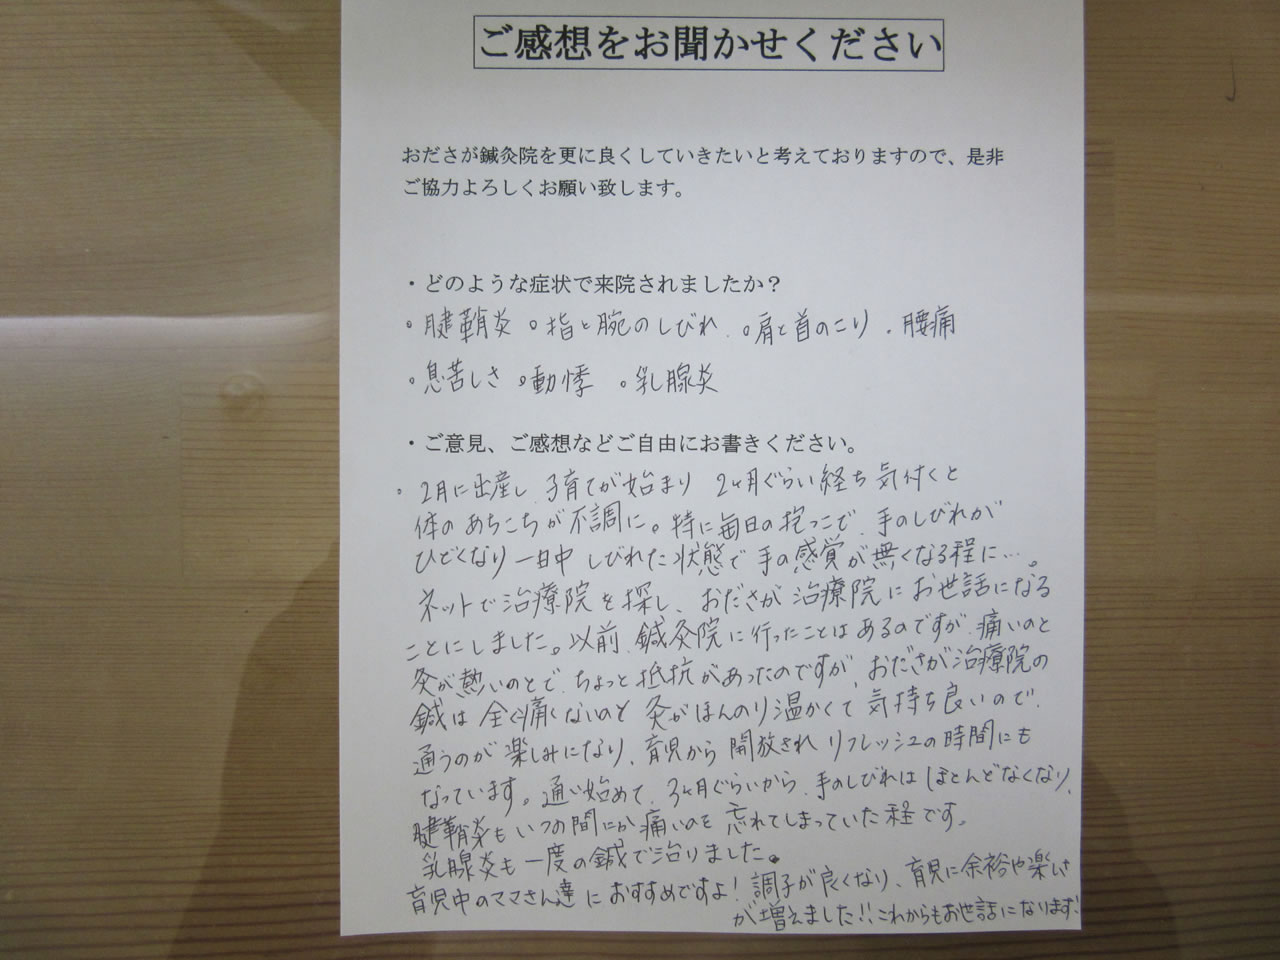 ご感想をお聞かせください
おださが鍼灸院を更に良くしていきたいと考えておりますので、是非
ご協力よろしくお願い致します。
・どのような症状で来院されましたか?
。腱鞘炎 。指と腕のしびれ 。肩と首のこり 。腰痛
。息苦しさ 。動悸 。乳腺炎
・ご意見、ご感想などご自由にお書きください。
。2月に出産し、子育てが始まり 2ヶ月ぐらい経ち気付くと
体のあちこちが不調に。特に毎日の抱っこで、手のしびれが
ひどくなり一日中しびれた状態で手の感覚が無くなる程に…。
ネットで治療院を探し、おださが治療院にお世話になる
ことにしました。以前、鍼灸院に行ったことはあるのですが、痛いのと
灸が熱いのとで、ちょっと抵抗があったのですが、おださが治療院の
鍼は全く痛くないのと灸がほんのり温かくて気持ち良いので、
通うのが楽しみになり、育児から開放されリフレッシュの時間にも
なっています。通い始めて、3ヶ月ぐらいから、手のしびれはほとんどなくなり、
腱鞘炎もいつの間にか痛いのを忘れてしまっていた程です。
乳腺炎も一度の鍼で治りました。
育児中のママさん達におすすめですよ!調子が良くなり、育児に余裕や楽しさ
が増えました!!これからもお世話になります!